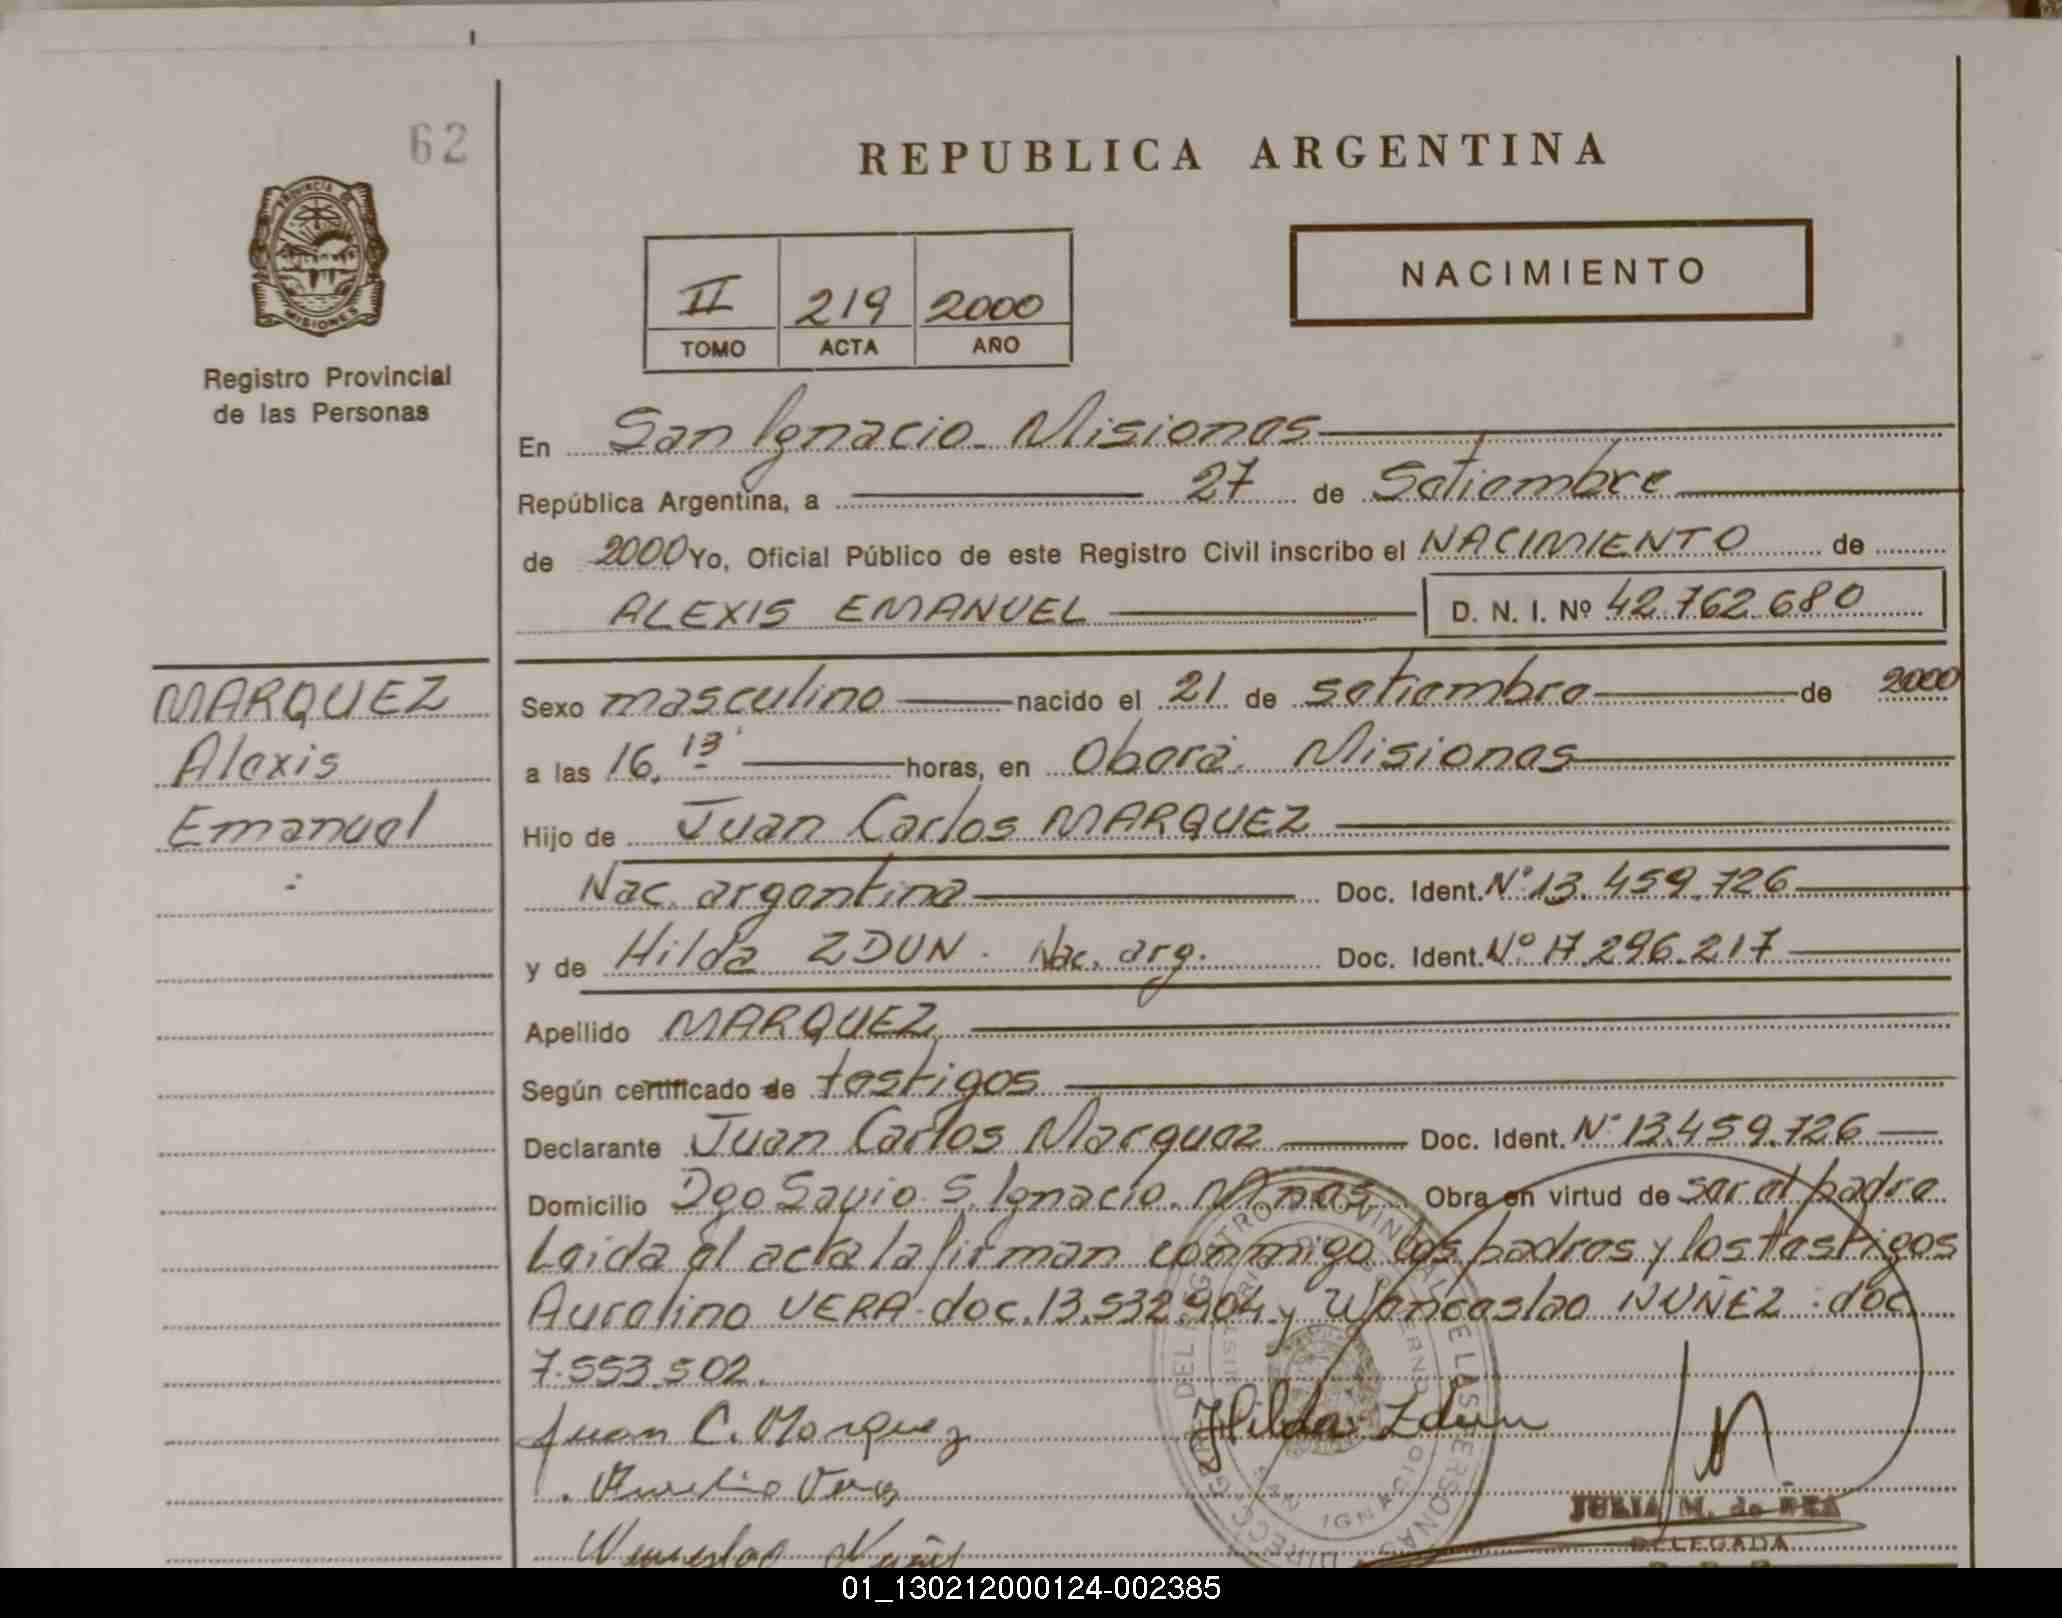 62
REPUBLICA ARGENTINA
PROVINCIA DE
MISIONES
Registro Provincial
de las Personas
II 219 2000
TOMO ACTA AÑO
NACIMIENTO
En San Ignacio - Misiones
República Argentina, a 27 de Setiembre
de 2000 Yo, Oficial Público de este Registro Civil inscribo el NACIMIENTO de
ALEXIS EMANUEL D. N. I. Nº 42.762.680
MARQUEZ
Alexis
Emanuel
Sexo masculino nacido el 21 de setiembre de 2000
a las 16,13' horas, en Oberá. Misiones
Hijo de Juan Carlos MARQUEZ
Nac. argentina Doc. Ident. Nº 13.459.726
y de Hilda ZDUN. Nac. arg. Doc. Ident. Nº 17.296.217
Apellido MARQUEZ
Según certificado de testigos
Declarante Juan Carlos Marquez Doc. Ident. Nº 13.459.726
Domicilio Dgo Savio. S. Ignacio. Mnes Obra en virtud de ser el padre
Leida el acta la firman conmigo los padres y los testigos
Aurelino VERA. doc. 13.532.904 y Wenceslao NUÑEZ. doc
7.553.502.
Juan C. Marquez Hilda Zdun
Aurelino Vera
JULIA M. de
DELEGADA
Wenceslao Nuñez
01_130212000124-002385